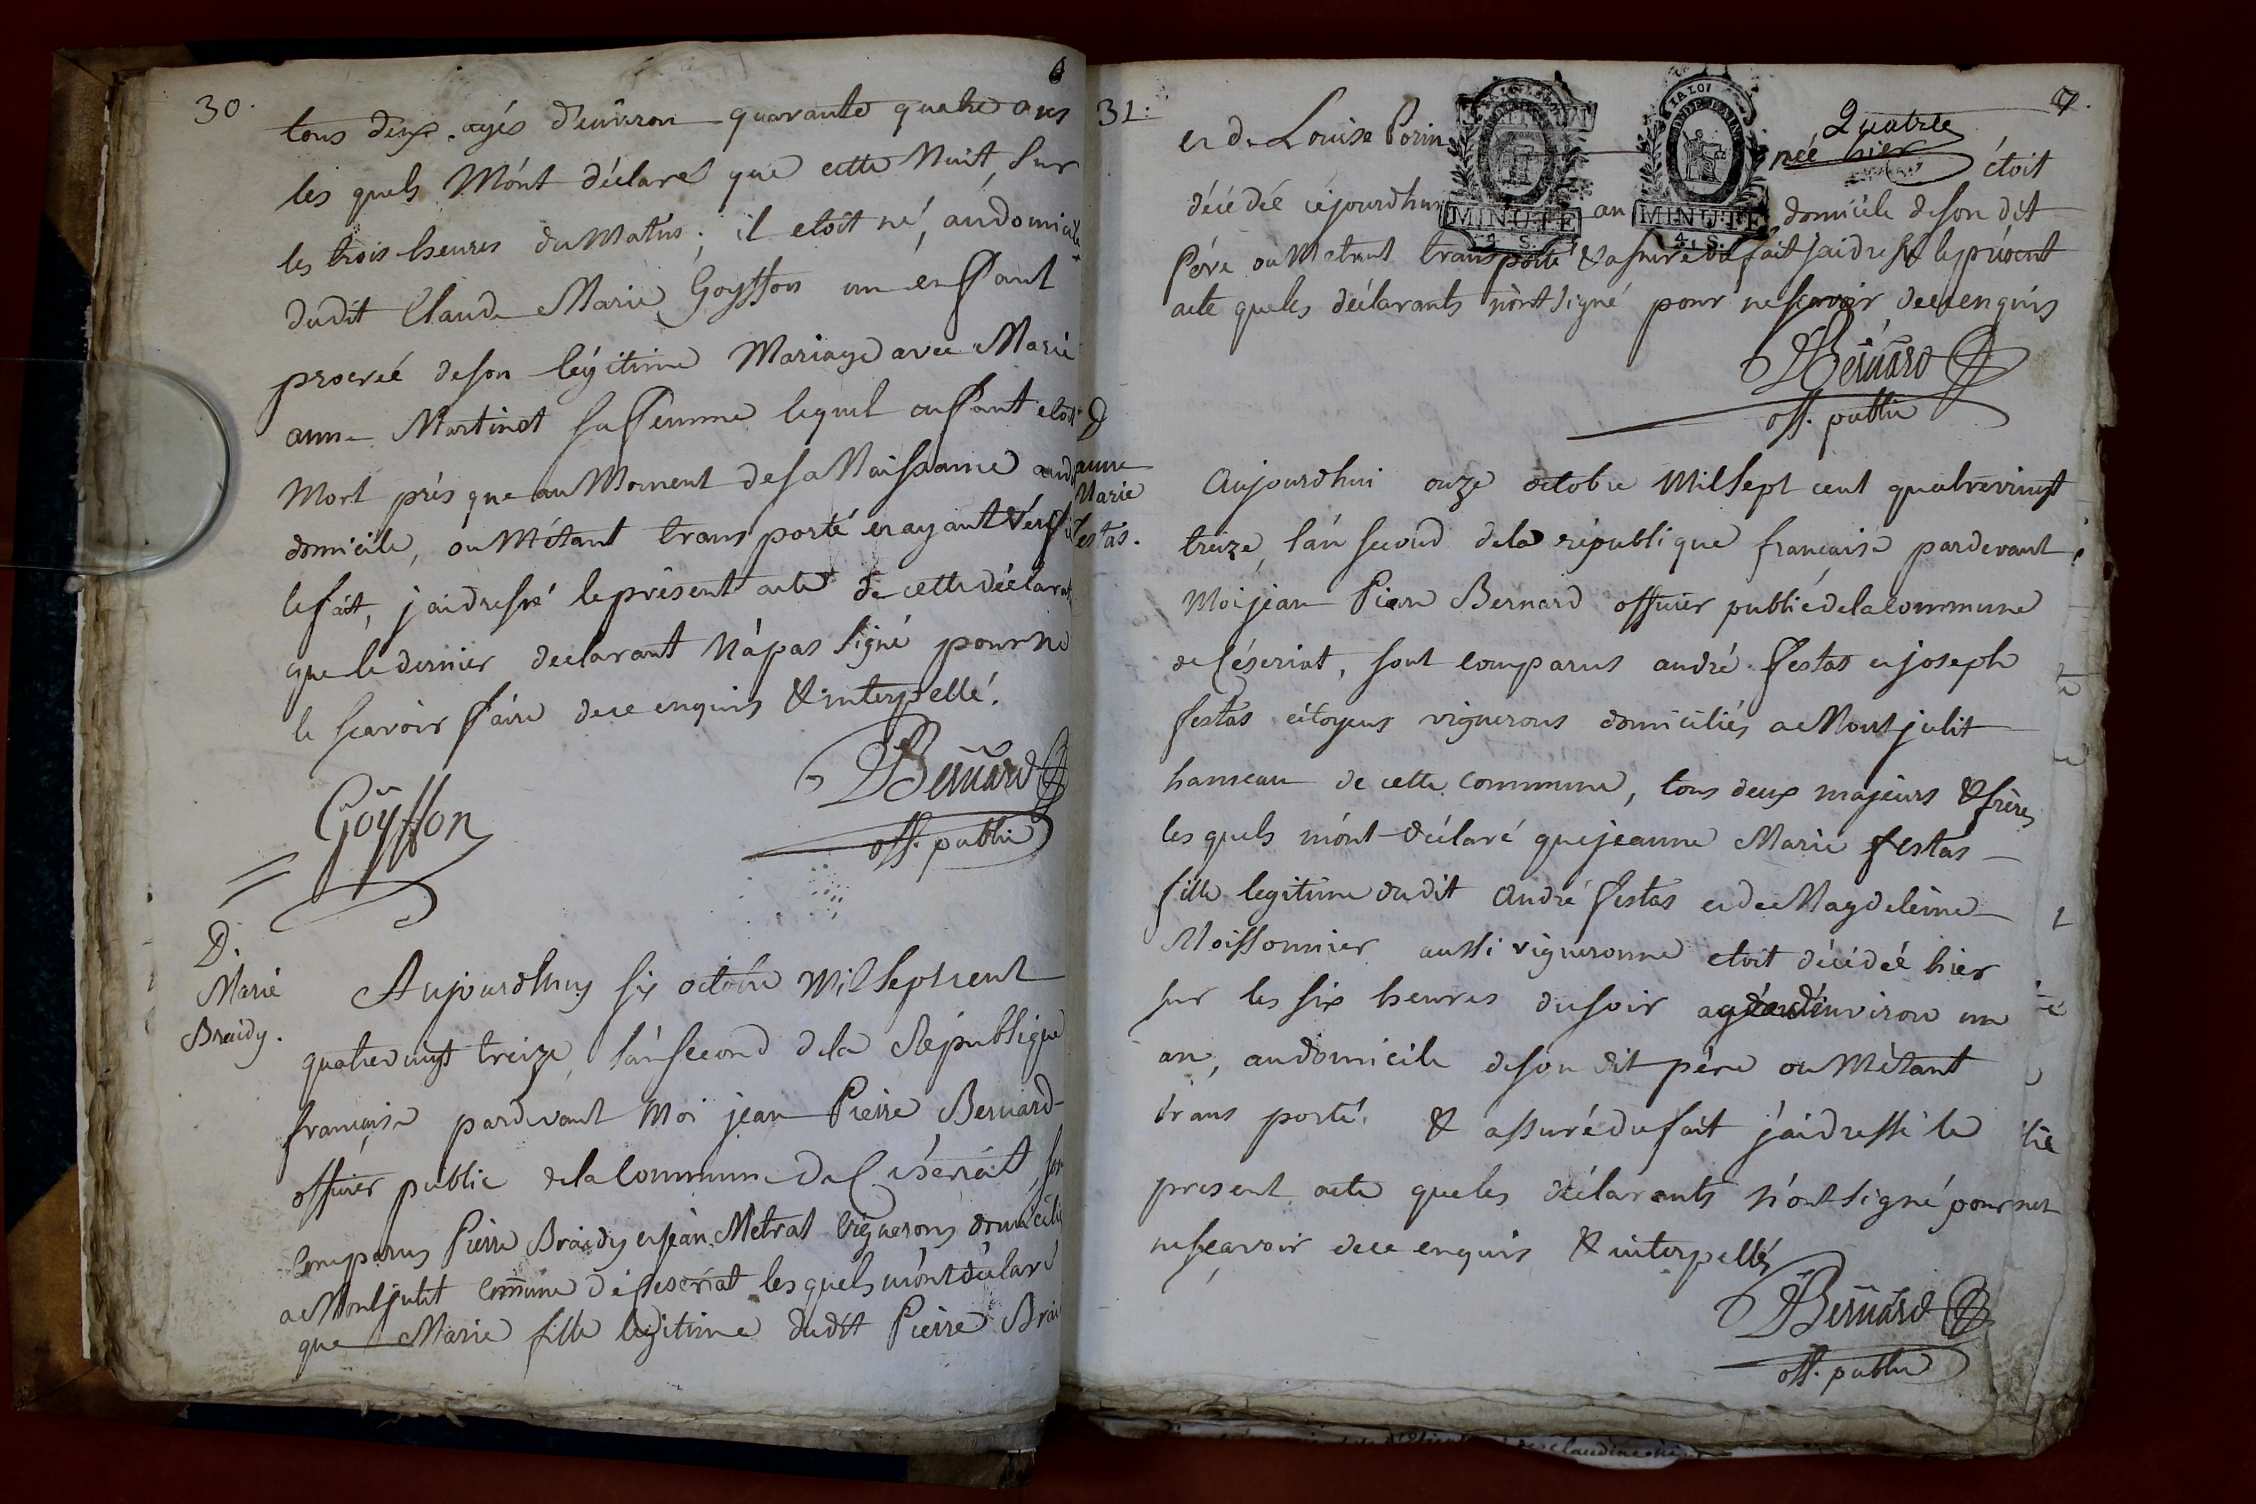 30.
6
tous deux agés d'environ quarante quatre ans
les quels m'ónt déclaré que cette Nuit, sur
les trois heures du Matin; il etoit né, au domicile
dudit Claude Marie Goyffon un enffant
procréé de son légitime Mariage avec Marie
anne Martinet sa ffemme lequel enffant etoit
Mort près que au Moment de sa Naissance audt
domicile, ou M'étant transporté et ayant vériffié
le fait, j'ai dressé le présent acte de cette déclarat
que le dernier declarant N'a pas signé pour Ne
le scavoir ffaire de ce enquis & interpellé.
Goÿffon
JPBernard
off. public
D.
Marie
Braidy.
Aujourdhuy six octobre Mil Sept cent
quatre vingt treize, l'an second de la République
française pardevant Moi jean Pierre Bernard
officier public de la Commune de Céseriat, son
comparus Pierre Braidy et jean Métrat Vignerons domicilié
a Montjulit Commune de Seseriat les quels m'ónt déclaré
que Marie fille légitime dudit Pierre Brai
31.
7.
et de Louise Porin
Quatre
née hier
étoit
LA LOI
décédée cejourdhui au domicile de son dit
MINUTE
4 S.
MINUTE
4 S.
Pére ou M'etant transporté & assuré du fait j'ai dressé le présent
acte que les déclarants n'ont signé pour ne scavoir de ce enquis
JPBernard
off. public
D
anne
Marie
festas.
Aujourdhui onze octobre Mil Sept cent quatrevingt
treize, l'an second de la république française pardevant
Moi jean Pierre Bernard officier public de la Commune
de Céseriat, sont comparus andré ffestas et joseph
ffestas citoyens vignerons domiciliés a Montjulit
hameau de cette Commune, tous deux majeurs & frères
les quels m'ónt déclaré que jeanne Marie ffestas
fille legitime dudit andré ffestas et de Magdeleine
Moissonnier aussi vigneronne etoit décédée hier
sur les six heures du soir agée d'environ un
an, au domicile de son dit pére ou M'étant
transporté & assuré du fait j'ai dressé le
present acte que les déclarants n'ont signé pour
ne scavoir de ce enquis & interpellés
JPBernard
off. public